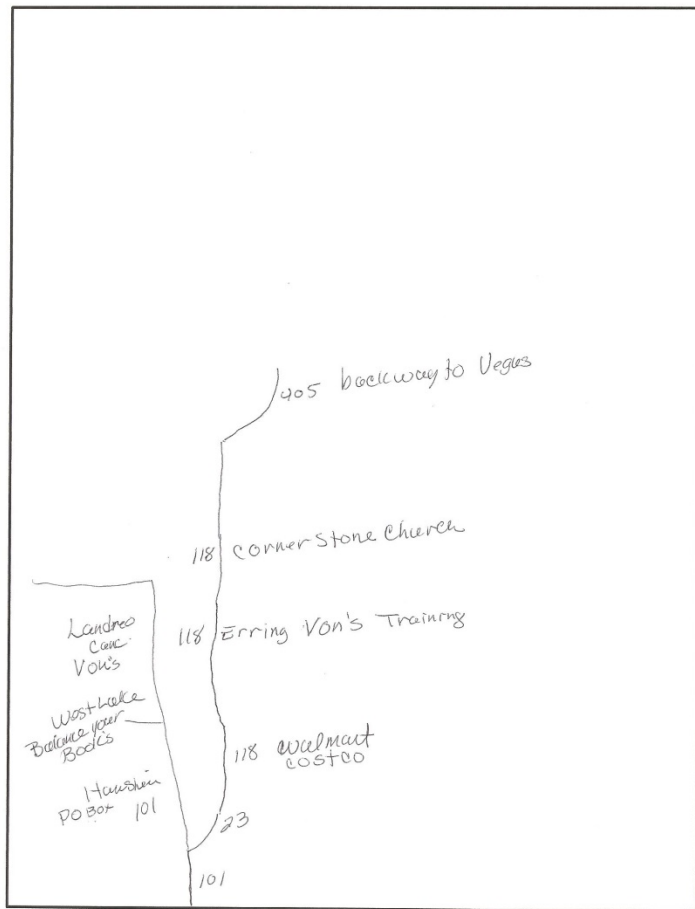 405 backway to Vegas
118 Corner Stone Church
118 Erring Von's Training
Landreo
Von's
West Lake
Balance your
Books
118 Walmart
COSTCO
PO BOX 101
23
101